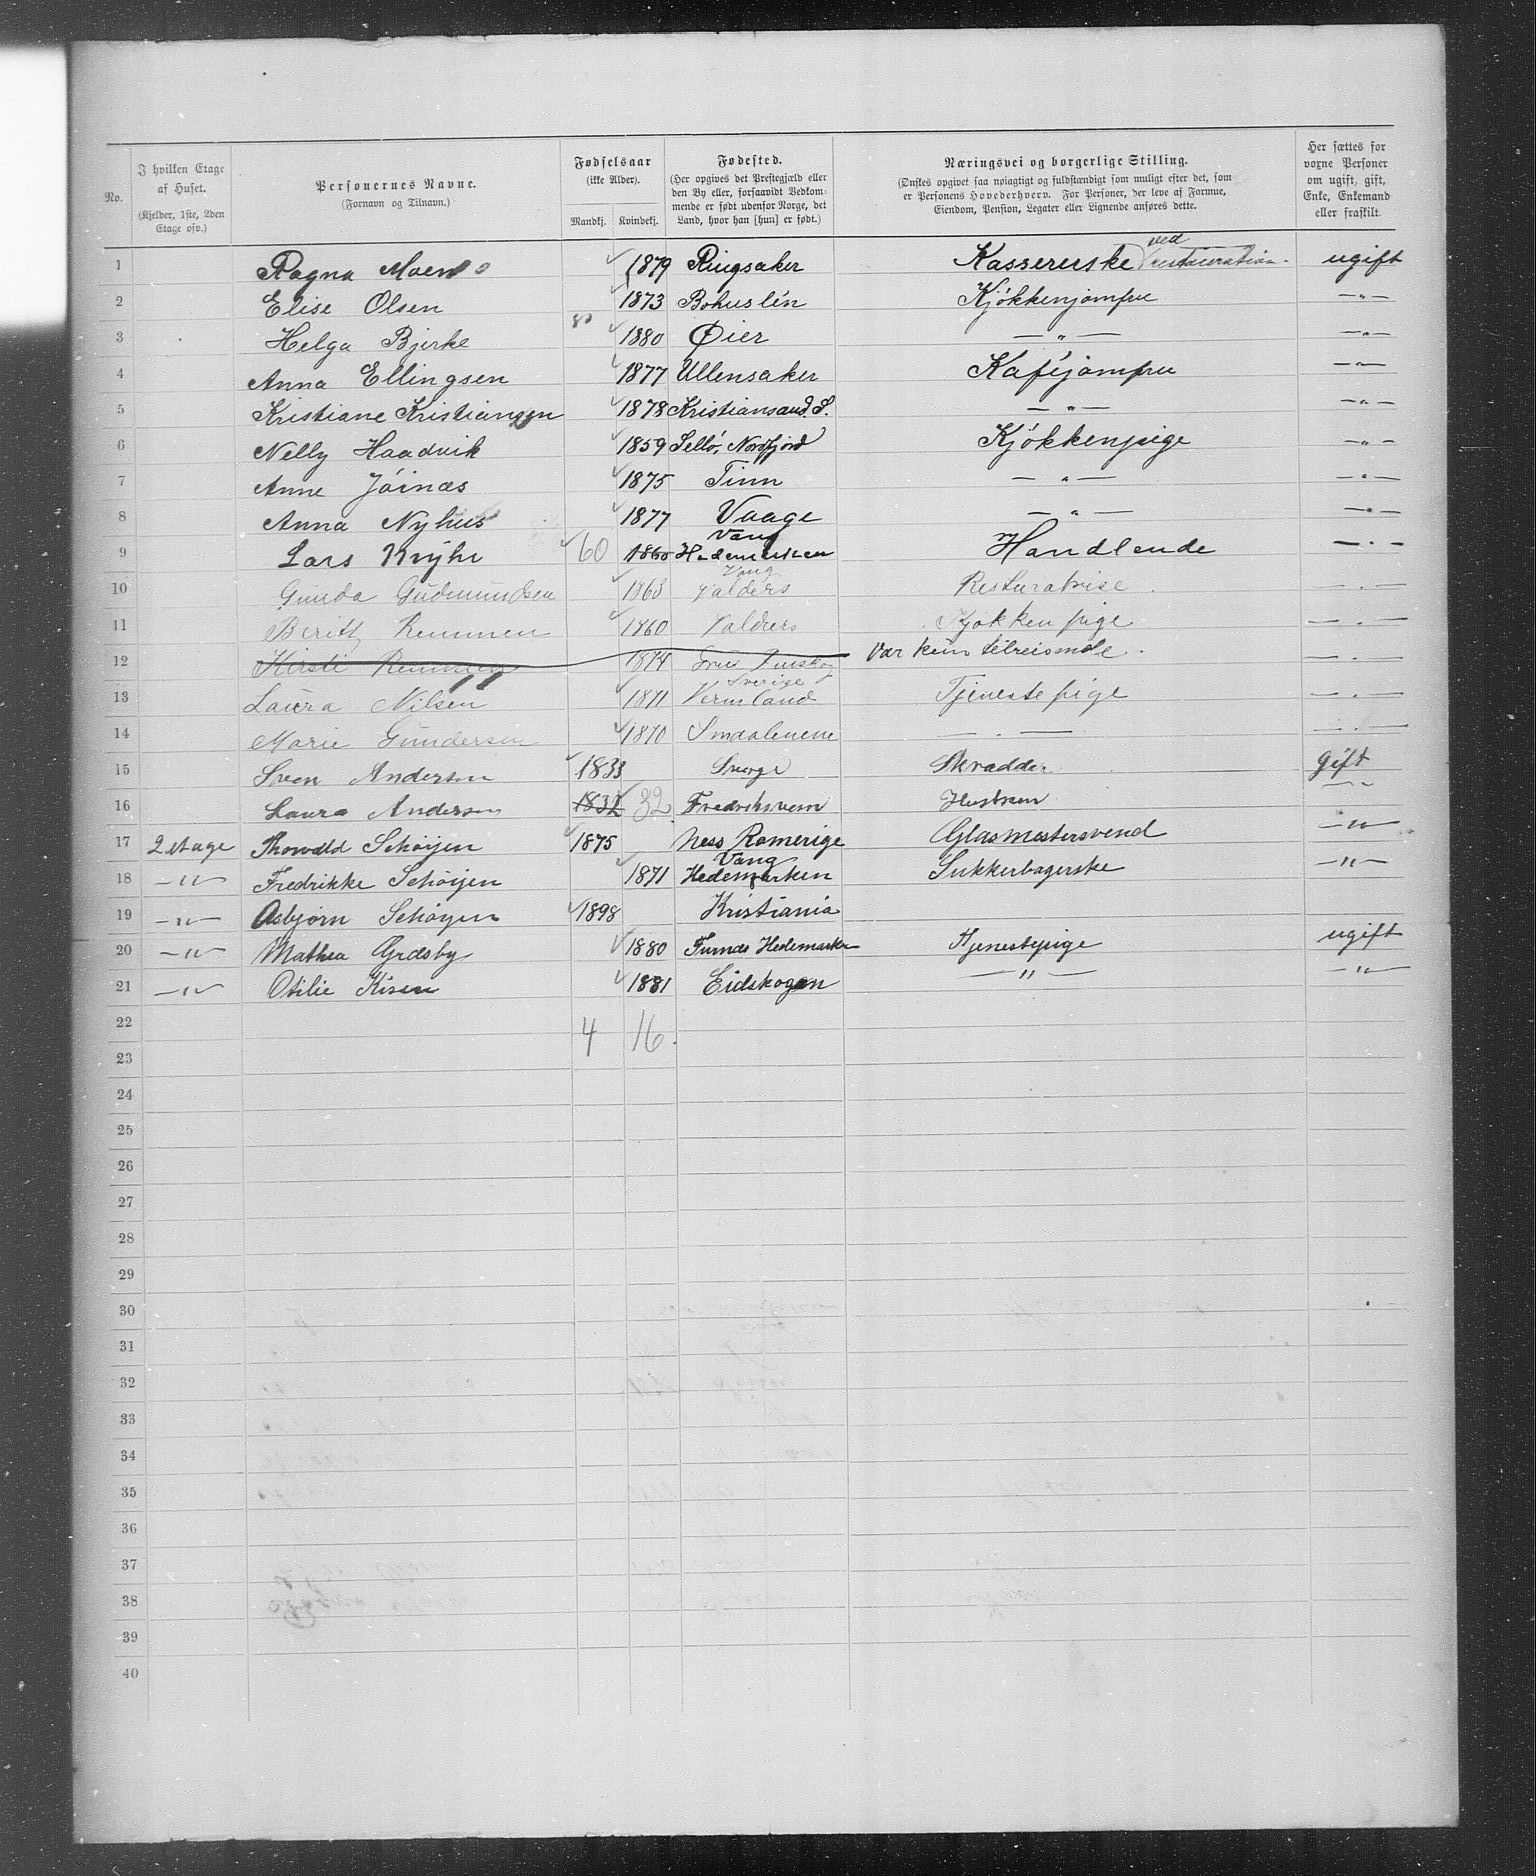 No.
I hvilken Etage af Huset.
(Kjelder, 1ste, 2den Etage osv.)
Personernes Navne.
(Fornavn og Tilnavn.)
Fødselsaar
(ikke Alder).
Mandkj. Kvindekj.
Fødested.
(Her opgives det Prestegjæld eller den By eller, forsaavidt Vedkommende er født udenfor Norge, det Land, hvor han [hun] er født.)
Næringsvei og borgerlige Stilling.
(Ønskes opgivet saa nøiagtigt og fuldstændigt som muligt efter det, som er Personens Hovederhverv. For Personer, der leve af Formue, Eiendom, Pension, Legater eller Lignende anføres dette.
Her sættes for voxne Personer om ugift, gift, Enke, Enkemand eller fraskilt.
1 Ragna Moen 1879 Ringsaker Kassererske ved restauration ugift
2 Elise Olsen 1873 Bohuslén Kjökkenjomfru —"—
3 Helga Bjerke 80 1880 Øier —"— —"—
4 Anna Ellingsen 1877 Ullensaker Kaféjomfru —"—
5 Kristiane Kristiansen 1878 Kristiansand. S. —"— —"—
6 Nelly Haadvik 1859 Sellö, Nordfjord Kjökkenpige —"—
7 Anne Jöinæs 1875 Tinn —"— —"—
8 Anna Nyhus 1877 Vaage —"— —"—
9 Lars Kryhr 60 1860 Vang Hedemarken Handlende —"—
10 Gunda Gudmundsen 1863 Vang Valders —"—
11 Berith Remmen 1860 Valders Kjøkken pige —"—
12 Kirsti Remmen 1874 Var kun tilreisende —"—
13 Laura Nilsen 1871 Sverige Vermland Tjeneste pige —"—
14 Marie Gundersen 1870 Smaalenene —"— —"—
15 Sven Andersen 1833 Sverge Skrædder gift
16 Laura Andersen 1832 32 Fredriksvern Hustru —"—
17 2 etage Thorvald Schöijen 1875 Ness Romerige Glasmestersvend —"—
18 —"— Fredrikke Schöijen 1871 Vang Hedemarken Sukkerbagerske —"—
19 —"— Asbjørn Schöyen 1898 Kristiania
20 —"— Mathea Grdsby 1880 Furnes Hedemarken Tjenestepige ugift
21 —"— Otilie Kisen 1881 Eidskogen —"— —"—
22 4 16.
23
24
25
26
27
28
29
30
31
32
33
34
35
36
37
38
39
40